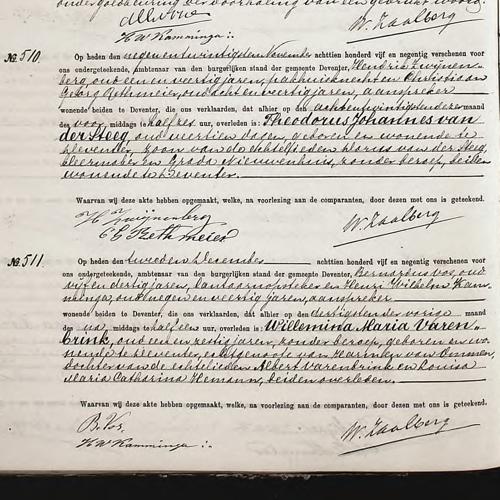 ondergoedkeuring der doorhaling van een gedrukt woord.
H W Kamminga :.
W. Zaalberg
No. 510.
Op heden den negenentwintigsten November achttien honderd vijf en negentig verschenen voor
ons ondergeteekende, ambtenaar van den burgerlijken stand der gemeente Deventer, Hendrik Zwijnen-
berg, oud een en veertig jaren, pakhuisknecht en Christiaan
Georg Rethmeier, oud acht en veertig jaren, aanspreker
wonende beiden te Deventer, die ons verklaarden, dat alhier op den achtentwintigsten dezer maand
des voor middags te half zes uur, overleden is: Theodorus Johannes van
der Steeg, oud veertien dagen, geboren en wonende te
Deventer, zoon van de echtelieden Florus van der Steeg,
kleermaker en Grada Nieuwenhuis, zonder beroep, beiden
wonende te Deventer.
Waarvan wij deze akte hebben opgemaakt, welke, na voorlezing aan de comparanten, door dezen met ons is geteekend.
H. Zwijnenberg
C G Rethmeier
W. Zaalberg
No. 511.
Op heden den tweeden December achttien honderd vijf en negentig verschenen voor
ons ondergeteekende, ambtenaar van den burgerlijken stand der gemeente Deventer, Bernardus Vos, oud
vijf en dertig jaren, kantooroppasser en Henri Wilhelm Kam-
minga, oud negen en veertig jaren, aanspreker
wonende beiden te Deventer, die ons verklaarden, dat alhier op den dertigsten der vorige maand
des na middags te half elf uur, overleden is: Willemina Maria Varen-
brink, oud een en zestig jaren, zonder beroep, geboren en wo-
nende te Deventer, echtgenoote van Harmken van Ommen,
dochter van de echtelieden Albert Varenbrink en Louisa
Maria Catharina Hemann, beiden overleden.
Waarvan wij deze akte hebben opgemaakt, welke, na voorlezing aan de comparanten, door dezen met ons is geteekend.
B. Vos.
H W Kamminga :.
W. Zaalberg